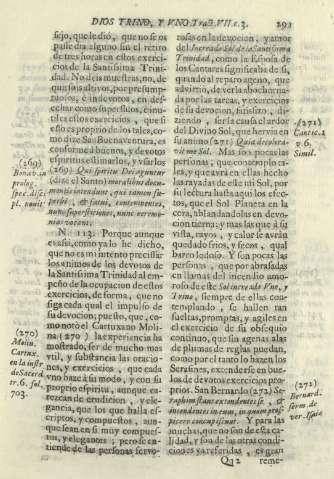 DIOS TRINO, Y VNO, Trat. VII. c. 3. 291
sejo, que le dió, que no se os
passe dia alguno sin el retiro
de tres horas en estos exerci-
cios de la Santissima Trini-
dad. No deis muestras, no, de
quan sois altivos, por presump-
tuosos, è indevotos, en des-
cios estos exercicios, que si
esso es proprio de los tales, co-
mo dize San Buenaventura, es
conforme à buenos, y devotos
espiritus estimarlos, y vsarlos
(269) Qui spiritu Dei aguntur
(dize el Santo)
nas superstitiones, nunc ceremo-
N. 113. Porque aunque
es assi, como ya lo he dicho,
que no es mi intento precissar
los animos de los devotos de
la Santissima Trinidad al em-
peño de la ocupacion de estos
exercicios, de forma, que no
siga cada qual el impulso de
su devocion; puesto, que, co-
mo notò el Cartuxano Moli-
na (270) la experiencia ha
mostrado, ser de mucho mas
vtil, y substancia las oracio-
nes, y exercicios, que cada
vno haze à su modo, y con su
proprio espiritu, aunque ca-
rezcan de erudicion, y ele-
gancia, que los que halla es-
critos, y compuestos, aun-
que sean en sì muy compues-
tos, y elegantes; pero se en-
tiende de las personas fervo-
(269)
Bonav. in
prolog.
(270)
Molin.
Cartux.
en la instr.
de Sacerd.
tr. 6. fol.
703.
rosas en la devocion, y amor
del Increado Sol de la Santissima
Trinidad, como la Esposa de
los Cantares significaba de sì,
quando al reparo ageno, que
advirtiò, de verla abochorna-
da por las tareas, y exercicios
de su devocion, satisfizo, di-
ziendo, ser la causa el ardor
del Divino Sol, que hervia en
su animo (271) Quia decolora-
vit me Sol. Mas son pocas las
personas, que contemplo ta-
les, y que avrà en ellas hecho
los rayos de este mi Sol, por
su lectura hasta aqui los efec-
tos, que el Sol Planeta en la
cera, ablandandolas en devo-
cion tierna; y mas las que à su
vista, rayos, y calor se avràn
quedado frios, y secos, qual
barro lodoso. Y son pocas las
personas, que por abrasadas
en llamas del incendio amo-
roso de este Sol increado Vno, y
Trino, siempre de ellas con-
templando, se hallen tan
sueltas, promptas, y agiles en
el exercicio de su obsequio
continuo, que sin agenas alas
de plumas de reglas puedan,
como por el tanto lo hazen los
Serafines, extenderse en bue-
los de devotos exercicios pro-
prios. San Bernardo (272) Se-
raphim stant extendentes se, &
Y para las
muchas, que no son de esta ca-
lidad, y son de las otras condi-
ciones ya referidas, es gran
(271)
Cantic. 1
v. 6.
Simil.
(272)
Bernard.
serm. de
ver. Isaiæ
Qq2 reme-